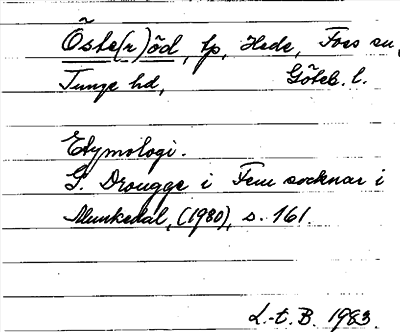 Öste(r)öd, lp, Hede, Foss sn,
Tunge hd, Göteb. l.
Etymologi.
G. Drougge i Fem socknar i
Munkedal, (1980), s. 161.
L.-t. B. 1983